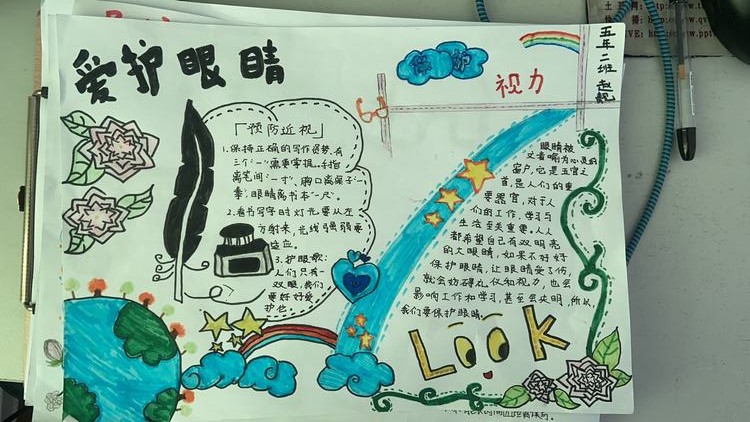 爱护眼睛
保护
视力
五年二班
「预防近视」
1.保持正确的写作姿势,有
三个"一"需要掌握。手指
离笔间一寸、胸口离桌子一
拳,眼睛离书本一尺。
2.看书写字时灯光要从左
方射来,光线弱要
适应。
3.护眼歌:
人们只有一
双眼,我们
要好好爱
护它。
眼睛被
文者喻为心灵的
窗户,它是五官之
首,是人们的重
要器官,对于人
们的工作,学习与
生活至关重要。人人
都希望自己有双明亮
的大眼睛,如果不好好
保护眼睛,让眼睛受了伤,
就会妨碍礼仪和视力,也会
影响工作和学习,甚至会失明,所以,
我们要保护眼睛。
LOOK